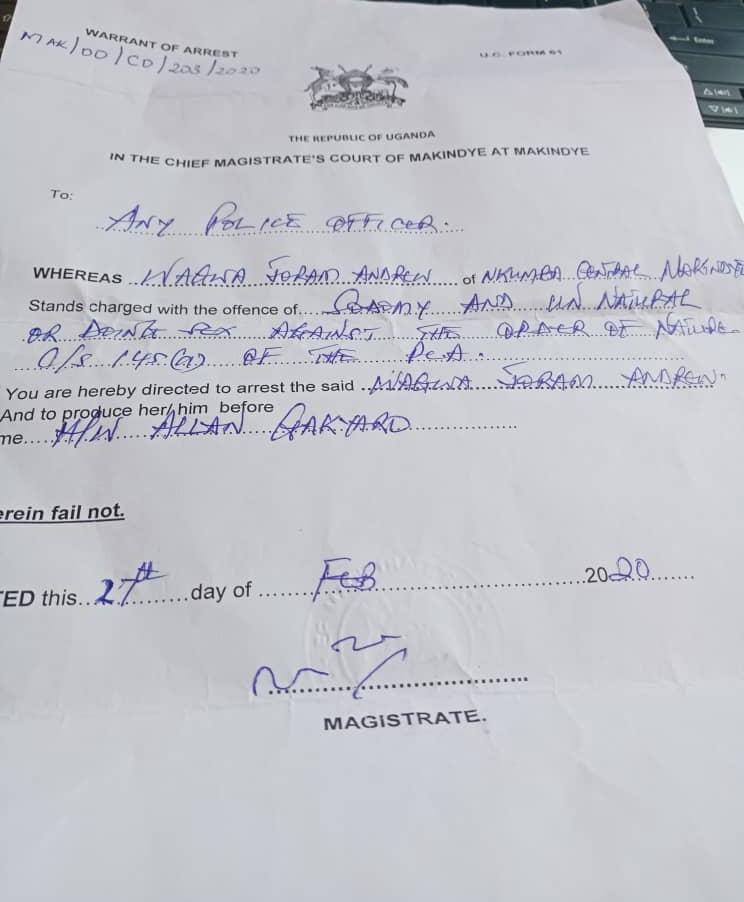 WARRANT OF ARREST
MAK/DO/CD/203/2020
U.C. FORM 61
THE REPUBLIC OF UGANDA
IN THE CHIEF MAGISTRATE'S COURT OF MAKINDYE AT MAKINDYE
To:
ANY POLICE OFFICER.
WHEREAS WAGWA JORAM ANDREW of NKUMBA CENTRAL
Stands charged with the offence of SODOMY AND UN NATURAL
OR DOING SEX AGAINST THE ORDER OF NATURE
C/S 145 (a) OF THE P.C.A.
You are hereby directed to arrest the said WAGWA JORAM ANDREW
And to produce her/him before
me H/W ALLAN GAKYARO
erein fail not.
TED this 27th day of FEB 2020
MAGISTRATE.
Enter